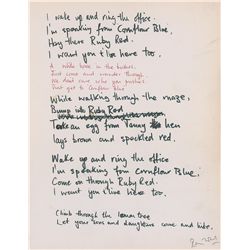 I wake up and ring the office.
I'm speaking from Cornflour Blue.
Hey there Ruby Red.
I want you to live here too.
A white horse in the bushes.
Just come and wander through.
We don't care who you
Just get to Cornflour Blue
While walking through the maze,
Bump into Ruby Red
Take an egg from Tawny hen
lays brown and speckled red.
Wake up and ring the office
I'm speaking from Cornflour Blue.
Come on through Ruby Red.
I want you live here too.
Climb through the lemon tree
Let your sons and daughters come and hide.